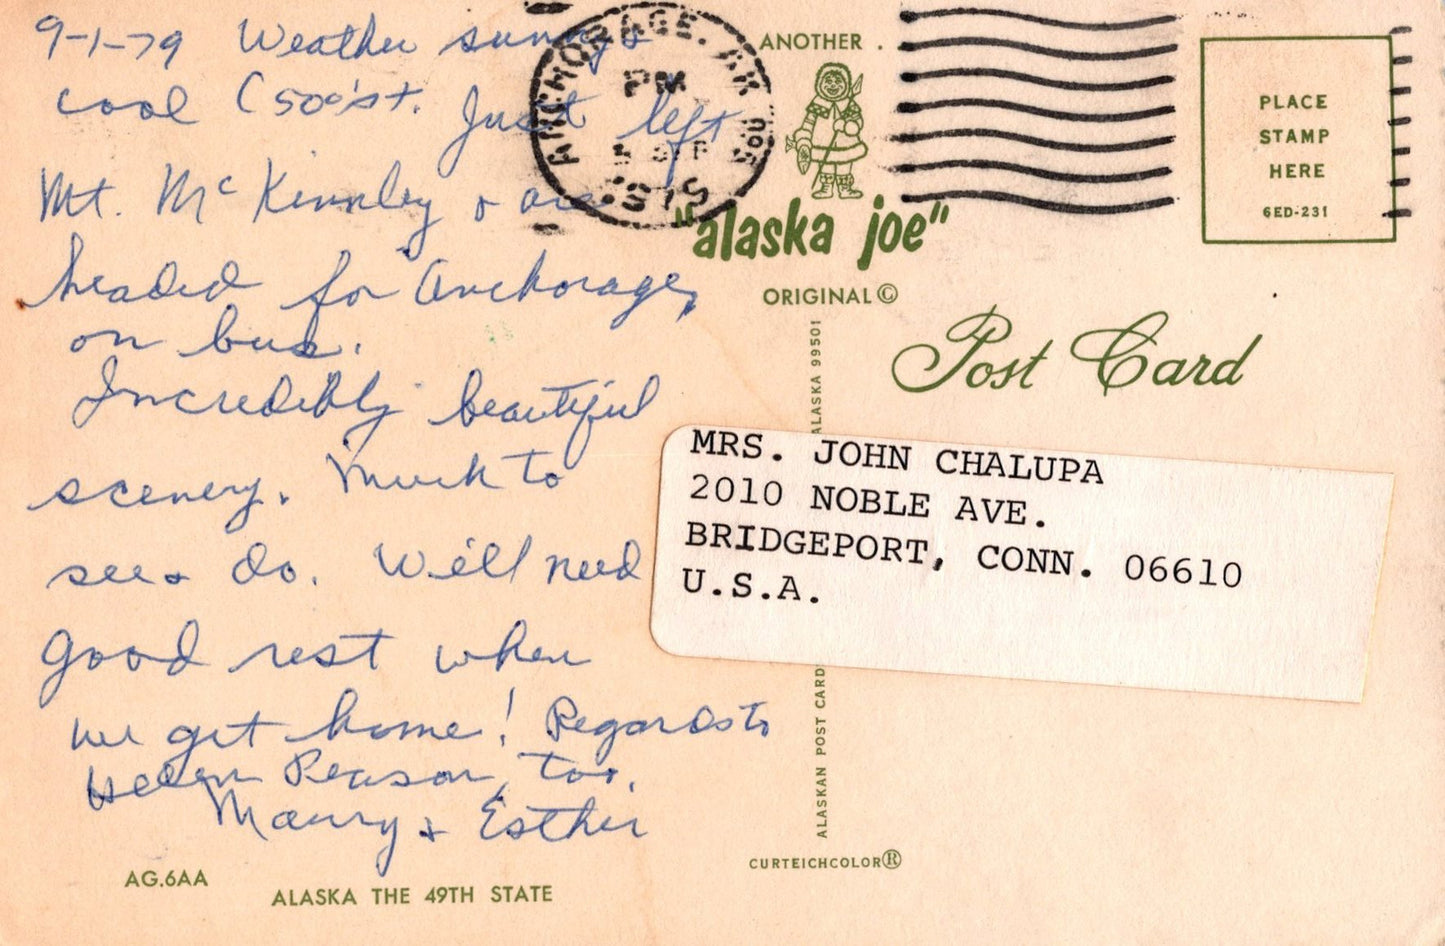 9-1-79 Weather sunny &
cool (50°'s+. Just left
Mt. McKinnley & are
headed for Anchorage,
on bus.
Incredibly beautiful
scenery. Much to
see & do. We'll need
good rest when
we get home! Regards to
Helen Reason, too.
Maury & Esther
AG.6AA
ALASKA THE 49TH STATE
ANCHORAGE, AK
PM
5 SEP
US
995
ANOTHER
"alaska joe"
ORIGINAL ©
ALASKAN POST CARD
ALASKA 99501
CURTEICHCOLOR®
PLACE
STAMP
HERE
6ED-231
Post Card
MRS. JOHN CHALUPA
2010 NOBLE AVE.
BRIDGEPORT, CONN. 06610
U.S.A.